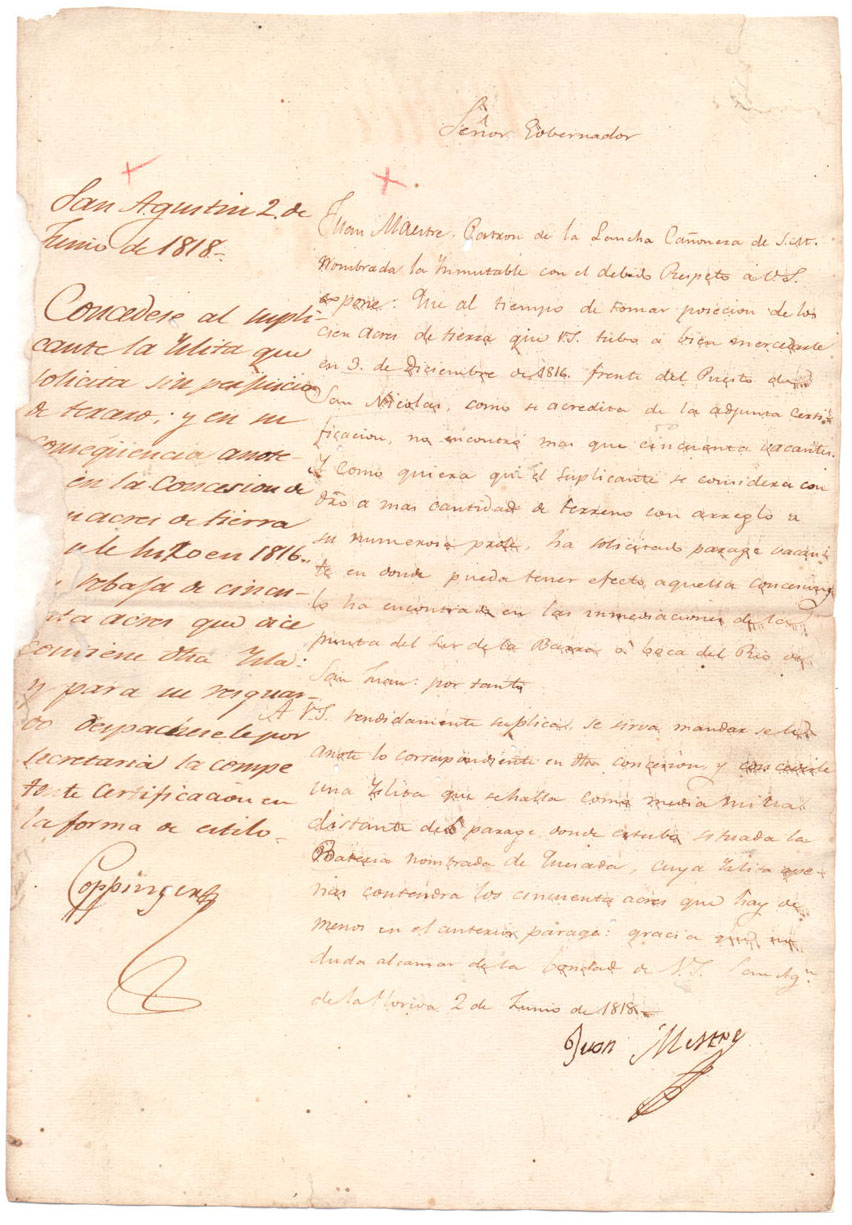 Señor Gobernador
San Agustin 2. de
Junio de 1818-
Concedese al supli
cante la Yslita que
solicita sin perjuicio
de terzero; y en su
conseqüencia anote-
en la Concesion de
n acres de tierra
e le hizo en 1816.
rebaja de cincu-
nta acres que dice
contiene dha Ysla:
y para su resguar-
do despachesele por
secretaria la compe
tente Certificacion en
la forma de estilo-
Coppinger
Juan Maestre. Patron de la Lancha Cañonera de S.M.
Nombrada la Ynmutable con el debido Respeto á V.S.
expone: Que al tiempo de tomar posecion de los
cien acres de tierra que V.S. tubo á bien mercedarle
en 3. de Diciembre de 1816. frente del Puesto de
San Nicolas, como se acredita de la adjunta Certi-
ficacion, no encontré mas que cincuenta vacantes.
Y como quiera que el suplicante se considera con
dro a mas cantidad de terreno con arreglo a
su numerosa prole, ha solicitado parage vacan-
te en donde pueda tener efecto aquella concesion, y
lo ha encontrado en las inmediaciones de la
punta del Sur de la Barra ó boca del Rio de
San Juan: por tanto
A V.S. rendidamente suplica, se sirva mandar se le
anote lo correspondiente en dha concesion, y concederle
una Yslita que se halla como media milla
distante del parage donde estuba situada la
Bateria nombrada de Quesada, cuya Yslita ape-
nas contendra los cincuenta acres que hay de
menos en el anterior parage: gracia que no
duda alcansar de la bondad de V.S. San Agn.
de la Florida 2 de Junio de 1818.-
Juan Mestre